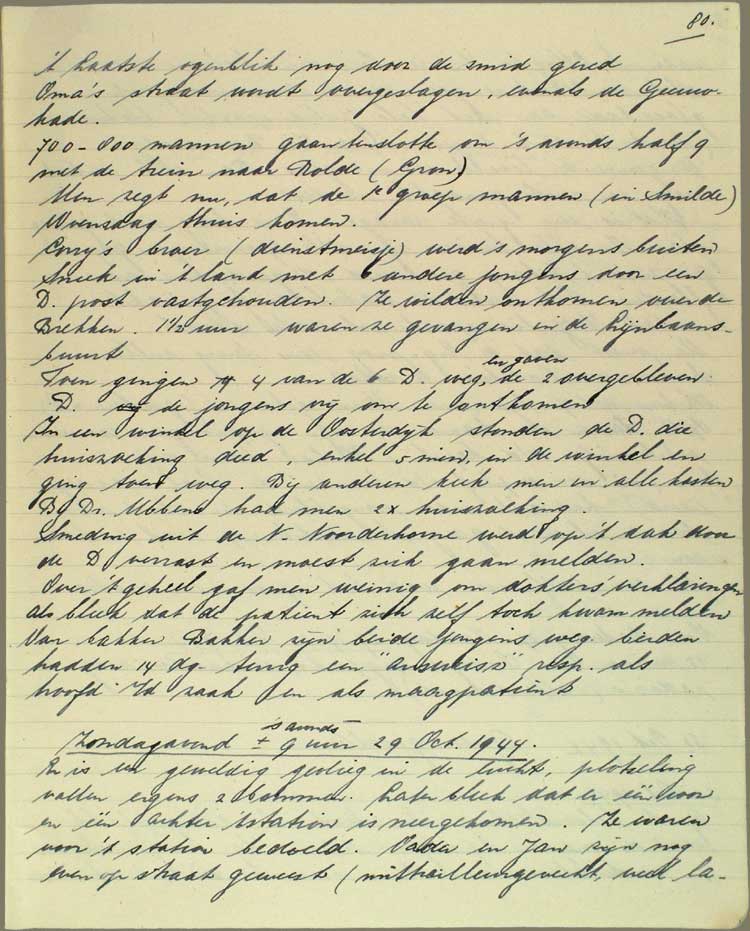 80.
't laatste ogenblik nog door de smid gered
Oma's straat wordt overgeslagen, evenals de Geeuw-
kade.
700-800 mannen gaan tenslotte om 's avonds half 9
met de trein naar Rolde (Gron)
Men zegt nu, dat de 1e groep mannen (in Smilde)
Woensdag thuis komen.
Corry's broer (dienstmeisje) werd 's morgens buiten
Sneek in 't land met 6 andere jongens door een
D. post vastgehouden. Ze wilden ontkomen over de
Brekken. 1½ uur waren ze gevangen in de Lijnbaans-
buurt
Toen gingen 4 van de 6 D. weg, en gaven de 2 overgebleven
D. de jongens vrij om te ontkomen
In een winkel op de Oosterdijk stonden de D. die
huiszoeking deed, enkel 5 min. in de winkel en
ging toen weg. Bij anderen keek men in alle kasten
Bij Dr. Ubbens had men 2x huiszoeking.
Smedwig uit de N. Noorderhorne werd op 't dak door
de D verrast en moest zich gaan melden.
Over 't geheel gaf men weinig om dokters' verklaringen
als bleek dat de patient zich zelf toch kwam melden
Van bakker Bakker zijn beide jongens weg. beiden
hadden 14 dg. terug een "ausweisz" resp. als
hoofd v/d zaak en als maagpatient
Zondagavond ± 's avonds 9 uur 29 Oct. 1944.
Er is een geweldig gevlieg in de lucht, plotseling
vallen ergens 2 bommen. Later bleek dat er één voor
en één achter 't station is neergekomen. Ze waren
voor 't station bedoeld. Vader en Jan zijn nog
even op straat geweest (mitrailleurgevecht, veel la-